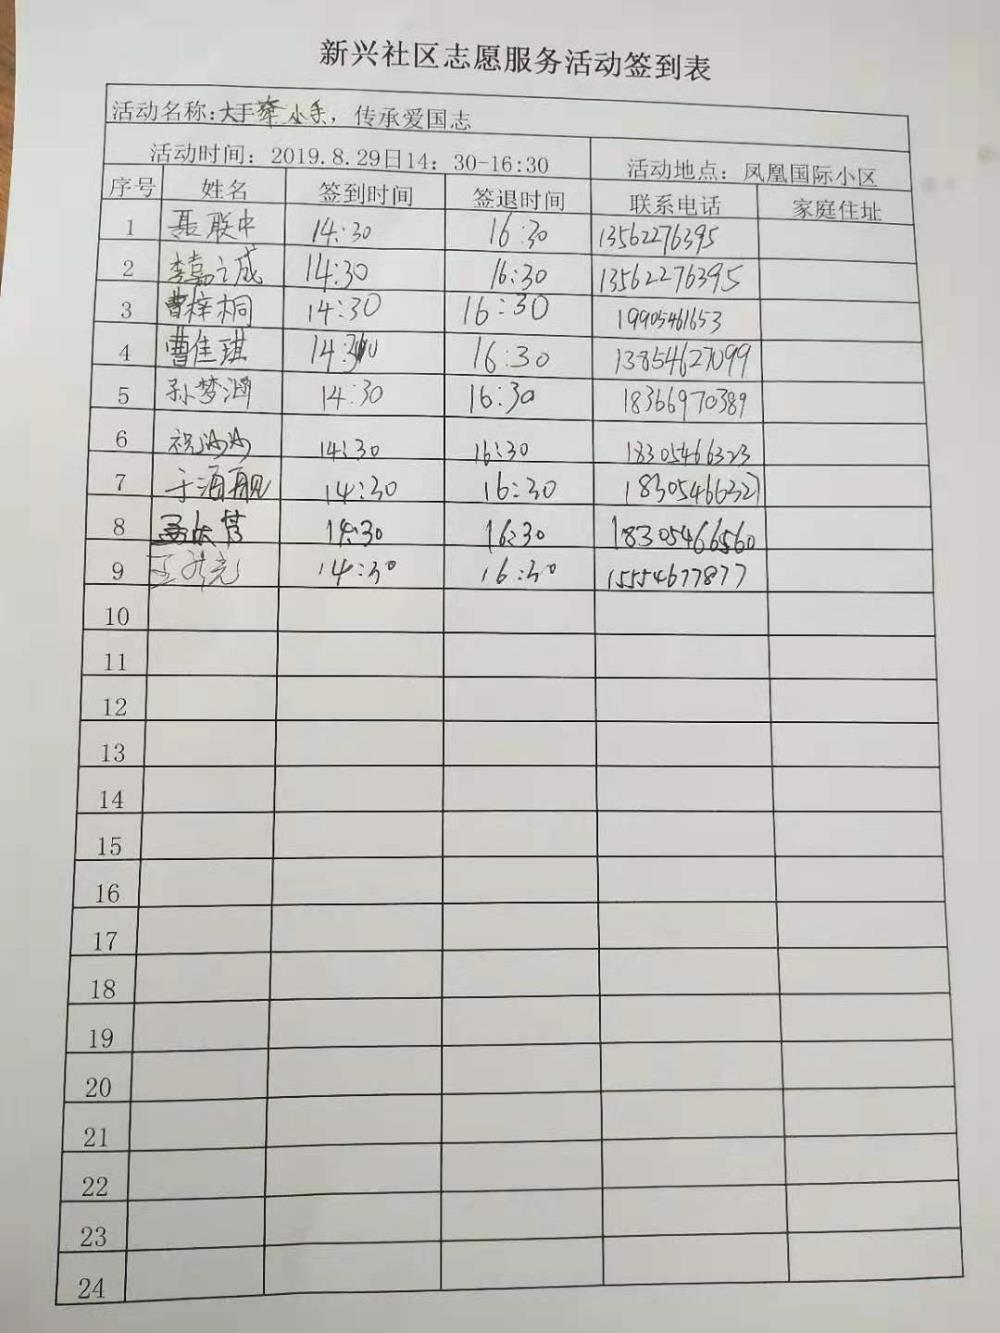 新兴社区志愿服务活动签到表
活动名称:大手牵小手，传承爱国志
活动时间：2019.8.29日14：30-16:30 活动地点：凤凰国际小区
序号 姓名 签到时间 签退时间 联系电话 家庭住址
1 聂联中 14:30 16:30 13562276395
2 李嘉诚 14:30 16:30 13562276395
3 曹梓桐 14:30 16:30 19905461653
4 曹佳琪 14:30 16:30 13854627099
5 孙梦涵 14:30 16:30 18366970389
6 祝沙沙 14:30 16:30 18305466323
7 于酒舰 14:30 16:30 18305466327
8 14:30 16:30 18305466560
9 14:30 16:30 15554677877
10
11
12
13
14
15
16
17
18
19
20
21
22
23
24